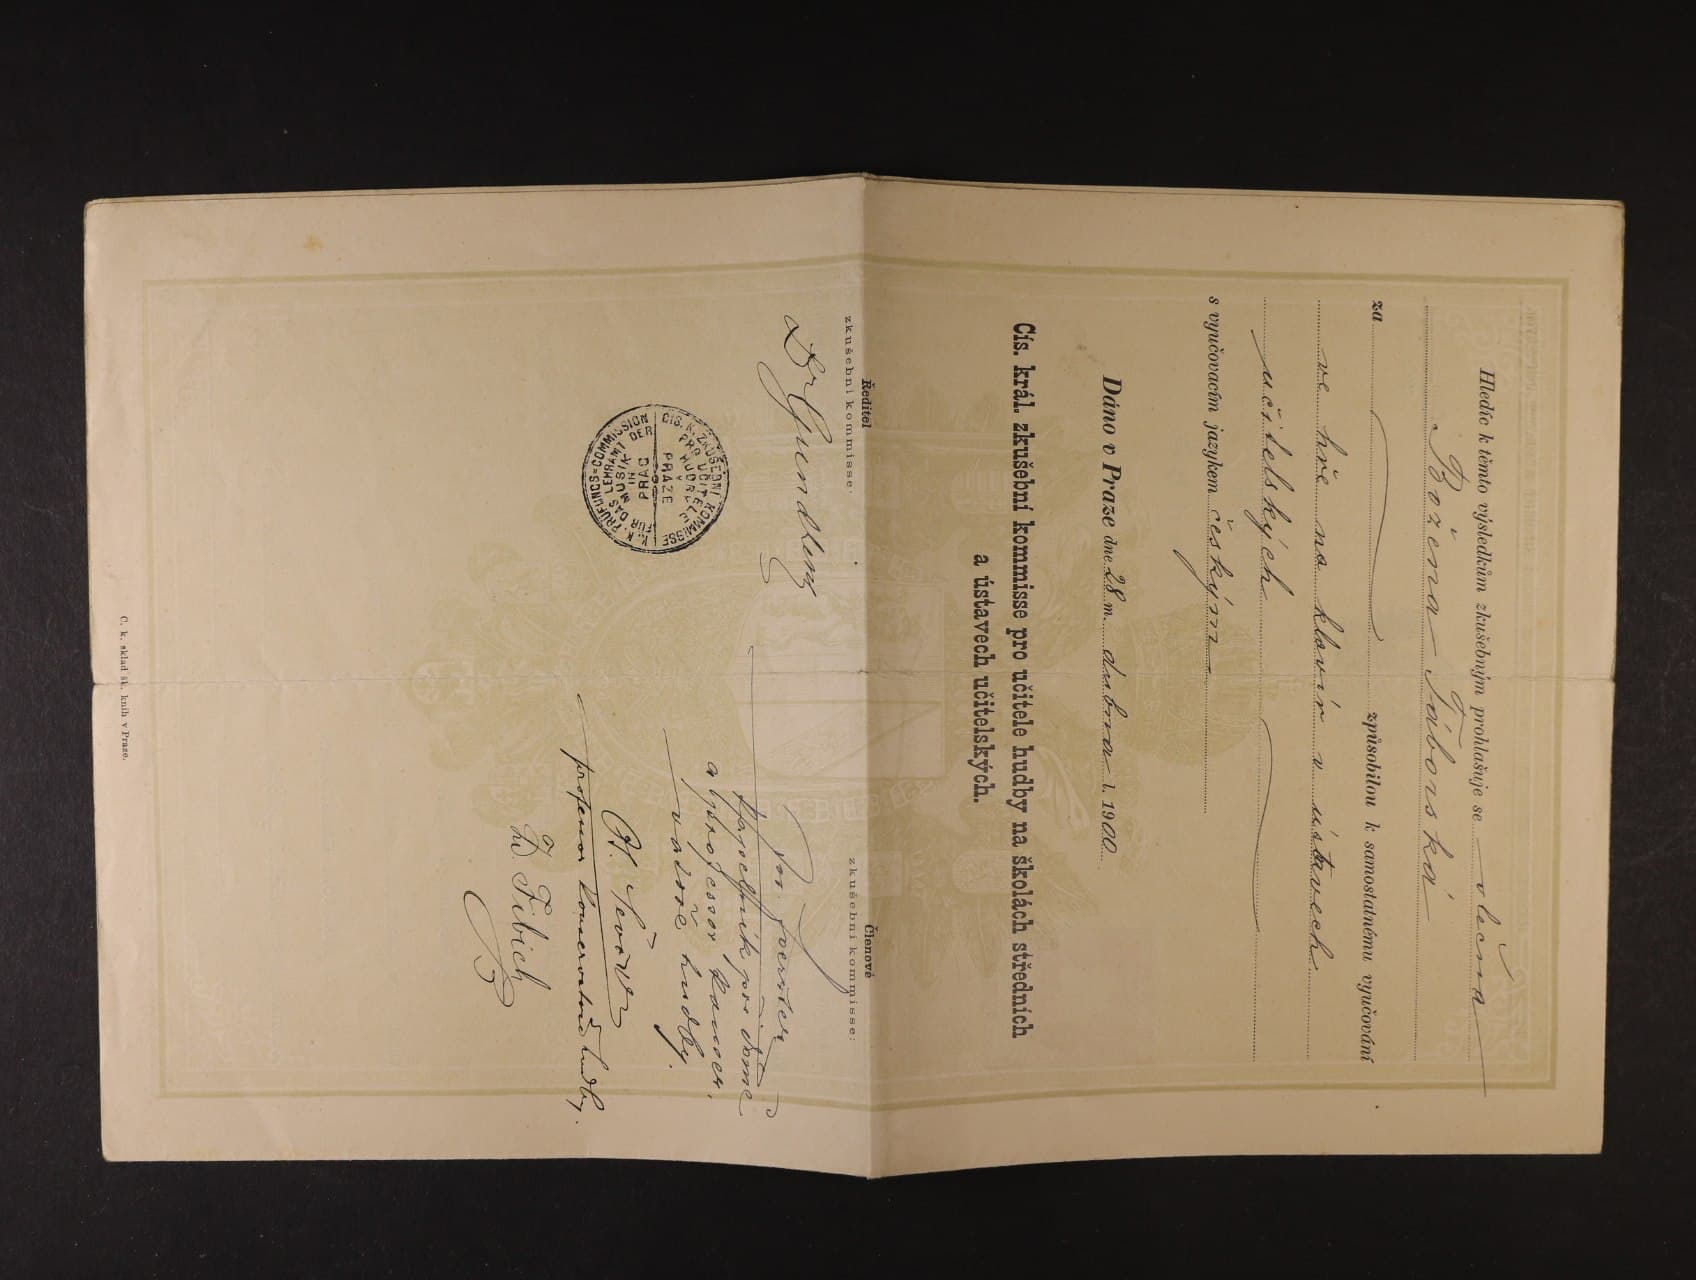 Hledíc k těmto výsledkům zkušebným prohlašuje se slečna
Božena Táborská
za způsobilou k samostatnému vyučování
ve hře na klavír v ústavech
učitelských
s vyučovacím jazykem českým
Dáno v Praze dne 28 m. dubna l. 1900
Cís. král. zkušební kommisse pro učitele hudby na školách středních
a ústavech učitelských.
Ředitel
zkušební kommisse:
Členové
zkušební kommisse:
Jos. Foerster
kapelník při dómě
a professor konser.
vatoře hudby.
professor konservatoře hudby.
Z. Fibich
CÍS. K. ZKUŠEBNÍ KOMMISSE
PRO UČITELE
HUDBY
V
PRAZE
K. K. PRÜFUNGS=COMMISSION
FÜR DAS LEHRAMT DER
MUSIK
IN
PRAG
C. k. sklad šk. knih v Praze.